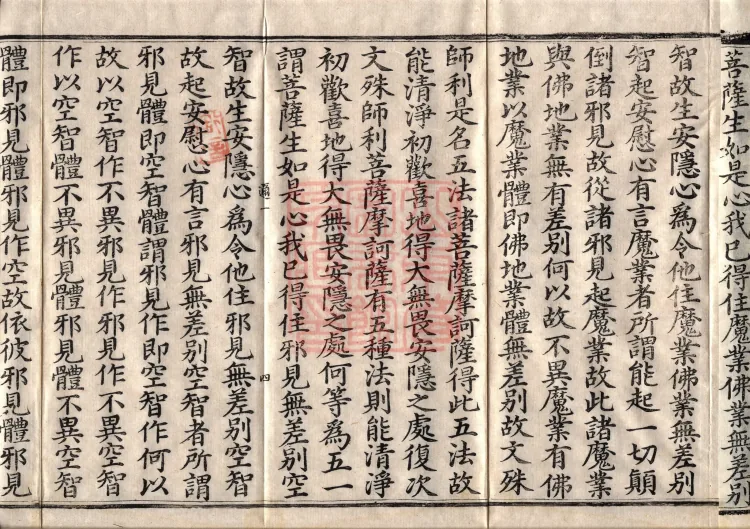 菩薩生如是心我已得住魔業佛業無差別
智故生安隱心為令他住魔業佛業無差別
智起安慰心有言魔業者所謂能起一切顛
倒諸邪見故從諸邪見起魔業故此諸魔業
與佛地業無有差別何以故不異魔業有佛
地業以魔業體即佛地業體無差別故文殊
師利是名五法諸菩薩摩訶薩得此五法故
能清淨初歡喜地得大無畏安隱之處復次
文殊師利菩薩摩訶薩有五種法則能清淨
初歡喜地得大無畏安隱之處何等為五一
謂菩薩生如是心我已得住邪見無差別空
智故生安隱心為令他住邪見無差別空智
故起安慰心有言邪見無差別空智者所謂
邪見體即空智體謂邪見作即空智作何以
故以空智作不異邪見作邪見作不異空智
作以空智體不異邪見體邪見體不異空智
體即邪見體邪見作空故依彼邪見體邪見
四